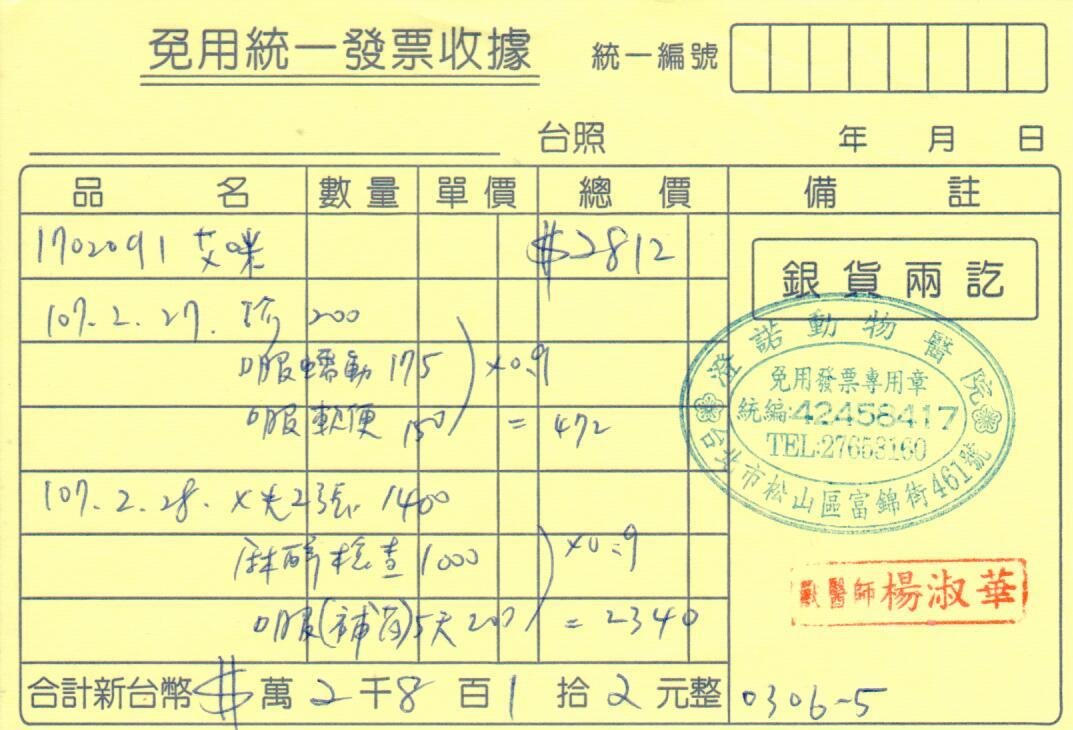 免用統一發票收據 統一編號
台照 年 月 日
品名 數量 單價 總價 備註
1702091 艾咪 $2812
銀貨兩訖
107.2.27. 診 200
口服蠕動 175 ×0.9
口服軟便 150 = 472
107.2.28. X光2張 1400
麻醉檢查 1000 ×0.9
口服(補茵)5天 200 = 2340
合計新台幣 $ 萬 2 千 8 百 1 拾 2 元整
0306-5
澄諾動物醫院
免用發票專用章
統編:42458417
TEL:27653160
台北市松山區富錦街461號
獸醫師 楊淑華